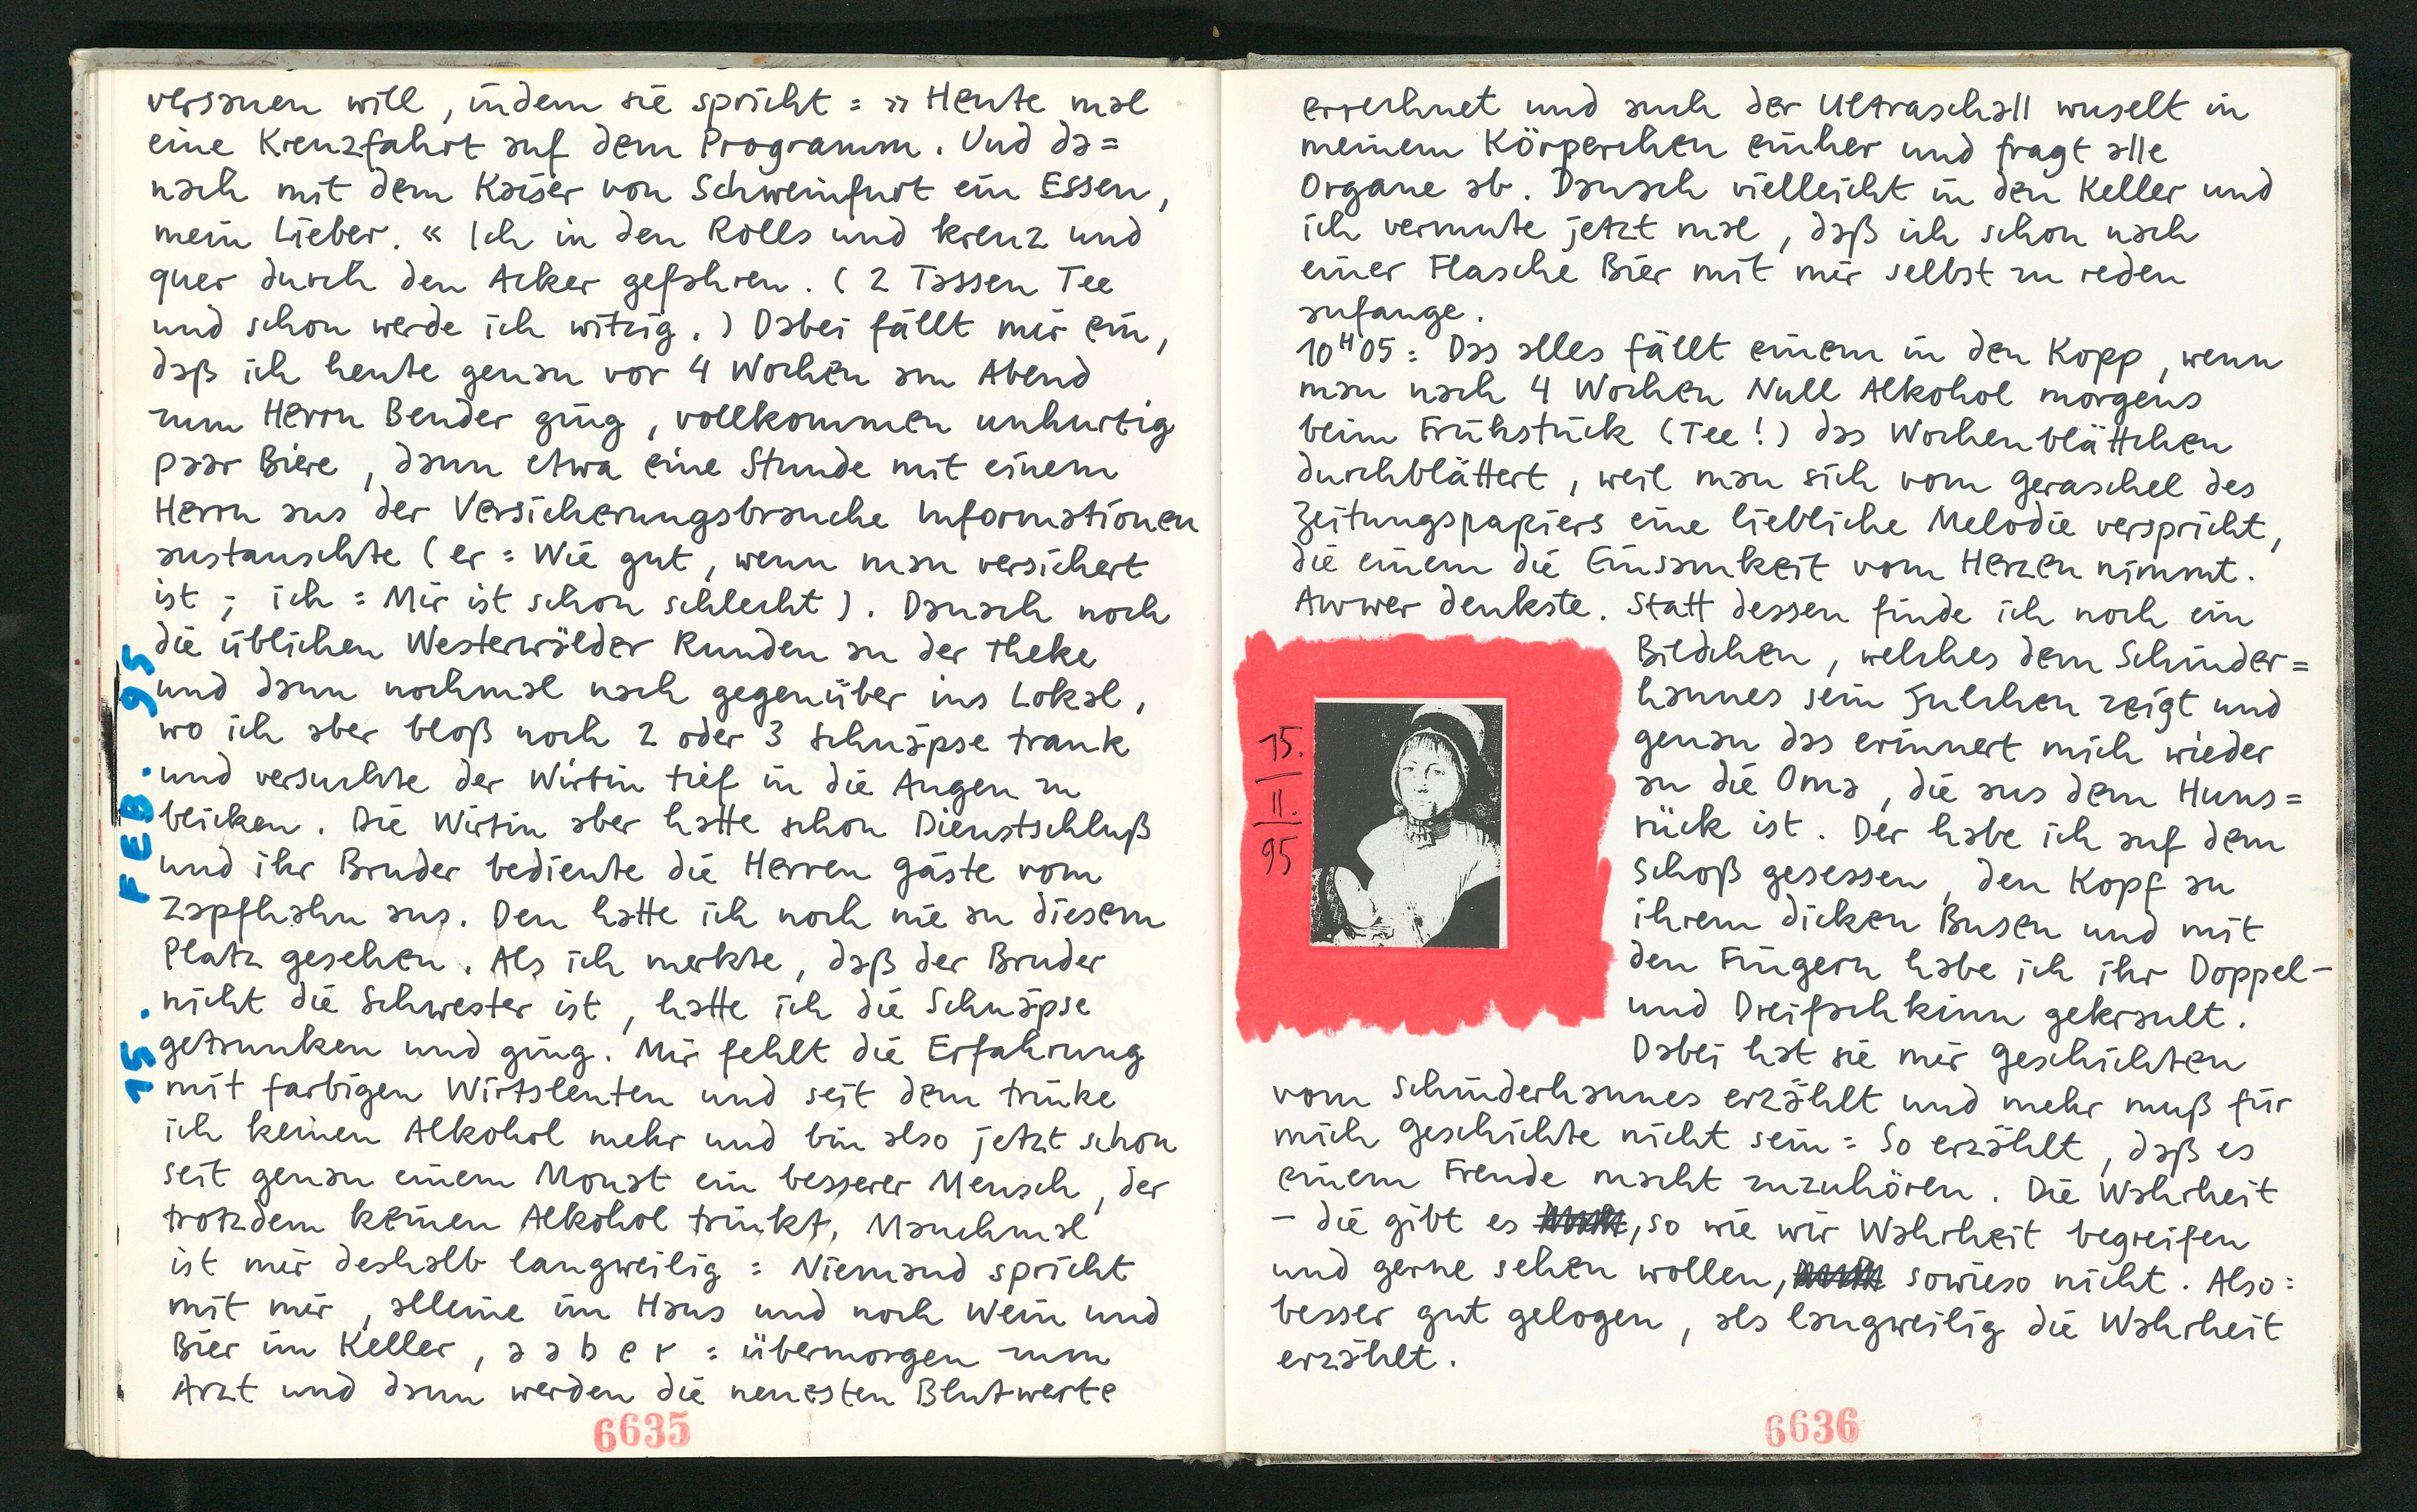 versauen will, indem sie spricht: »Heute mal
eine Kreuzfahrt auf dem Programm. Und da=
nach mit dem Kaiser von Schweinfurt ein Essen,
mein Lieber.« Ich in den Rolls und kreuz und
quer durch den Acker gefahren. (2 Tassen Tee
und schon werde ich witzig.) Dabei fällt mir ein,
daß ich heute genau vor 4 Wochen am Abend
zum Herrn Bender ging, vollkommen unhurtig
paar Biere, dann etwa eine Stunde mit einem
Herrn aus der Versicherungsbranche Informationen
austauschte (er: Wie gut, wenn man versichert
ist; ich: Mir ist schon schlecht). Danach noch
die üblichen Westerwälder Runden an der Theke
und dann nochmal nach gegenüber ins Lokal,
wo ich aber bloß noch 2 oder 3 Schnäpse trank
und versuchte der Wirtin tief in die Augen zu
blicken. Die Wirtin aber hatte schon Dienstschluß
und ihr Bruder bediente die Herren Gäste vom
Zapfhahn aus. Den hatte ich noch nie an diesem
Platz gesehen. Als ich merkte, daß der Bruder
nicht die Schwester ist, hatte ich die Schnäpse
getrunken und ging. Mir fehlt die Erfahrung
mit farbigen Wirtsleuten und seit dem trinke
ich keinen Alkohol mehr und bin also jetzt schon
seit genau einem Monat ein besserer Mensch, der
trotzdem keinen Alkohol trinkt. Manchmal
ist mir deshalb langweilig: Niemand spricht
mit mir, alleine im Haus und noch Wein und
Bier im Keller, a a b e r : übermorgen zum
Arzt und dann werden die neuesten Blutwerte
15. FEB. 95
6635
errechnet und auch der Ultraschall wuselt in
meinem Körperchen einher und fragt alle
Organe ab. Danach vielleicht in den Keller und
ich vermute jetzt mal, daß ich schon nach
einer Flasche Bier mit mir selbst zu reden
anfange.
10H05: Das alles fällt einem in den Kopp, wenn
man nach 4 Wochen Null Alkohol morgens
beim Frühstück (Tee!) das Wochenblättchen
durchblättert, weil man sich vom Geraschel des
Zeitungspapiers eine liebliche Melodie verspricht,
die einem die Einsamkeit vom Herzen nimmt.
Awwer denkste. Statt dessen finde ich noch ein
Bildchen, welches dem Schinder=
hannes sein Julchen zeigt und
genau das erinnert mich wieder
an die Oma, die aus dem Huns=
rück ist. Der habe ich auf dem
Schoß gesessen, den Kopf an
ihrem dicken Busen und mit
den Fingern habe ich ihr Doppel-
und Dreifachkinn gekrault.
Dabei hat sie mir Geschichten
vom Schinderhannes erzählt und mehr muß für
mich Geschichte nicht sein: So erzählt, daß es
einem Freude macht zuzuhören. Die Wahrheit
– die gibt es , so wie wir Wahrheit begreifen
und gerne sehen wollen, sowieso nicht. Also:
besser gut gelogen, als langweilig die Wahrheit
erzählt.
15.
II.
95
6636